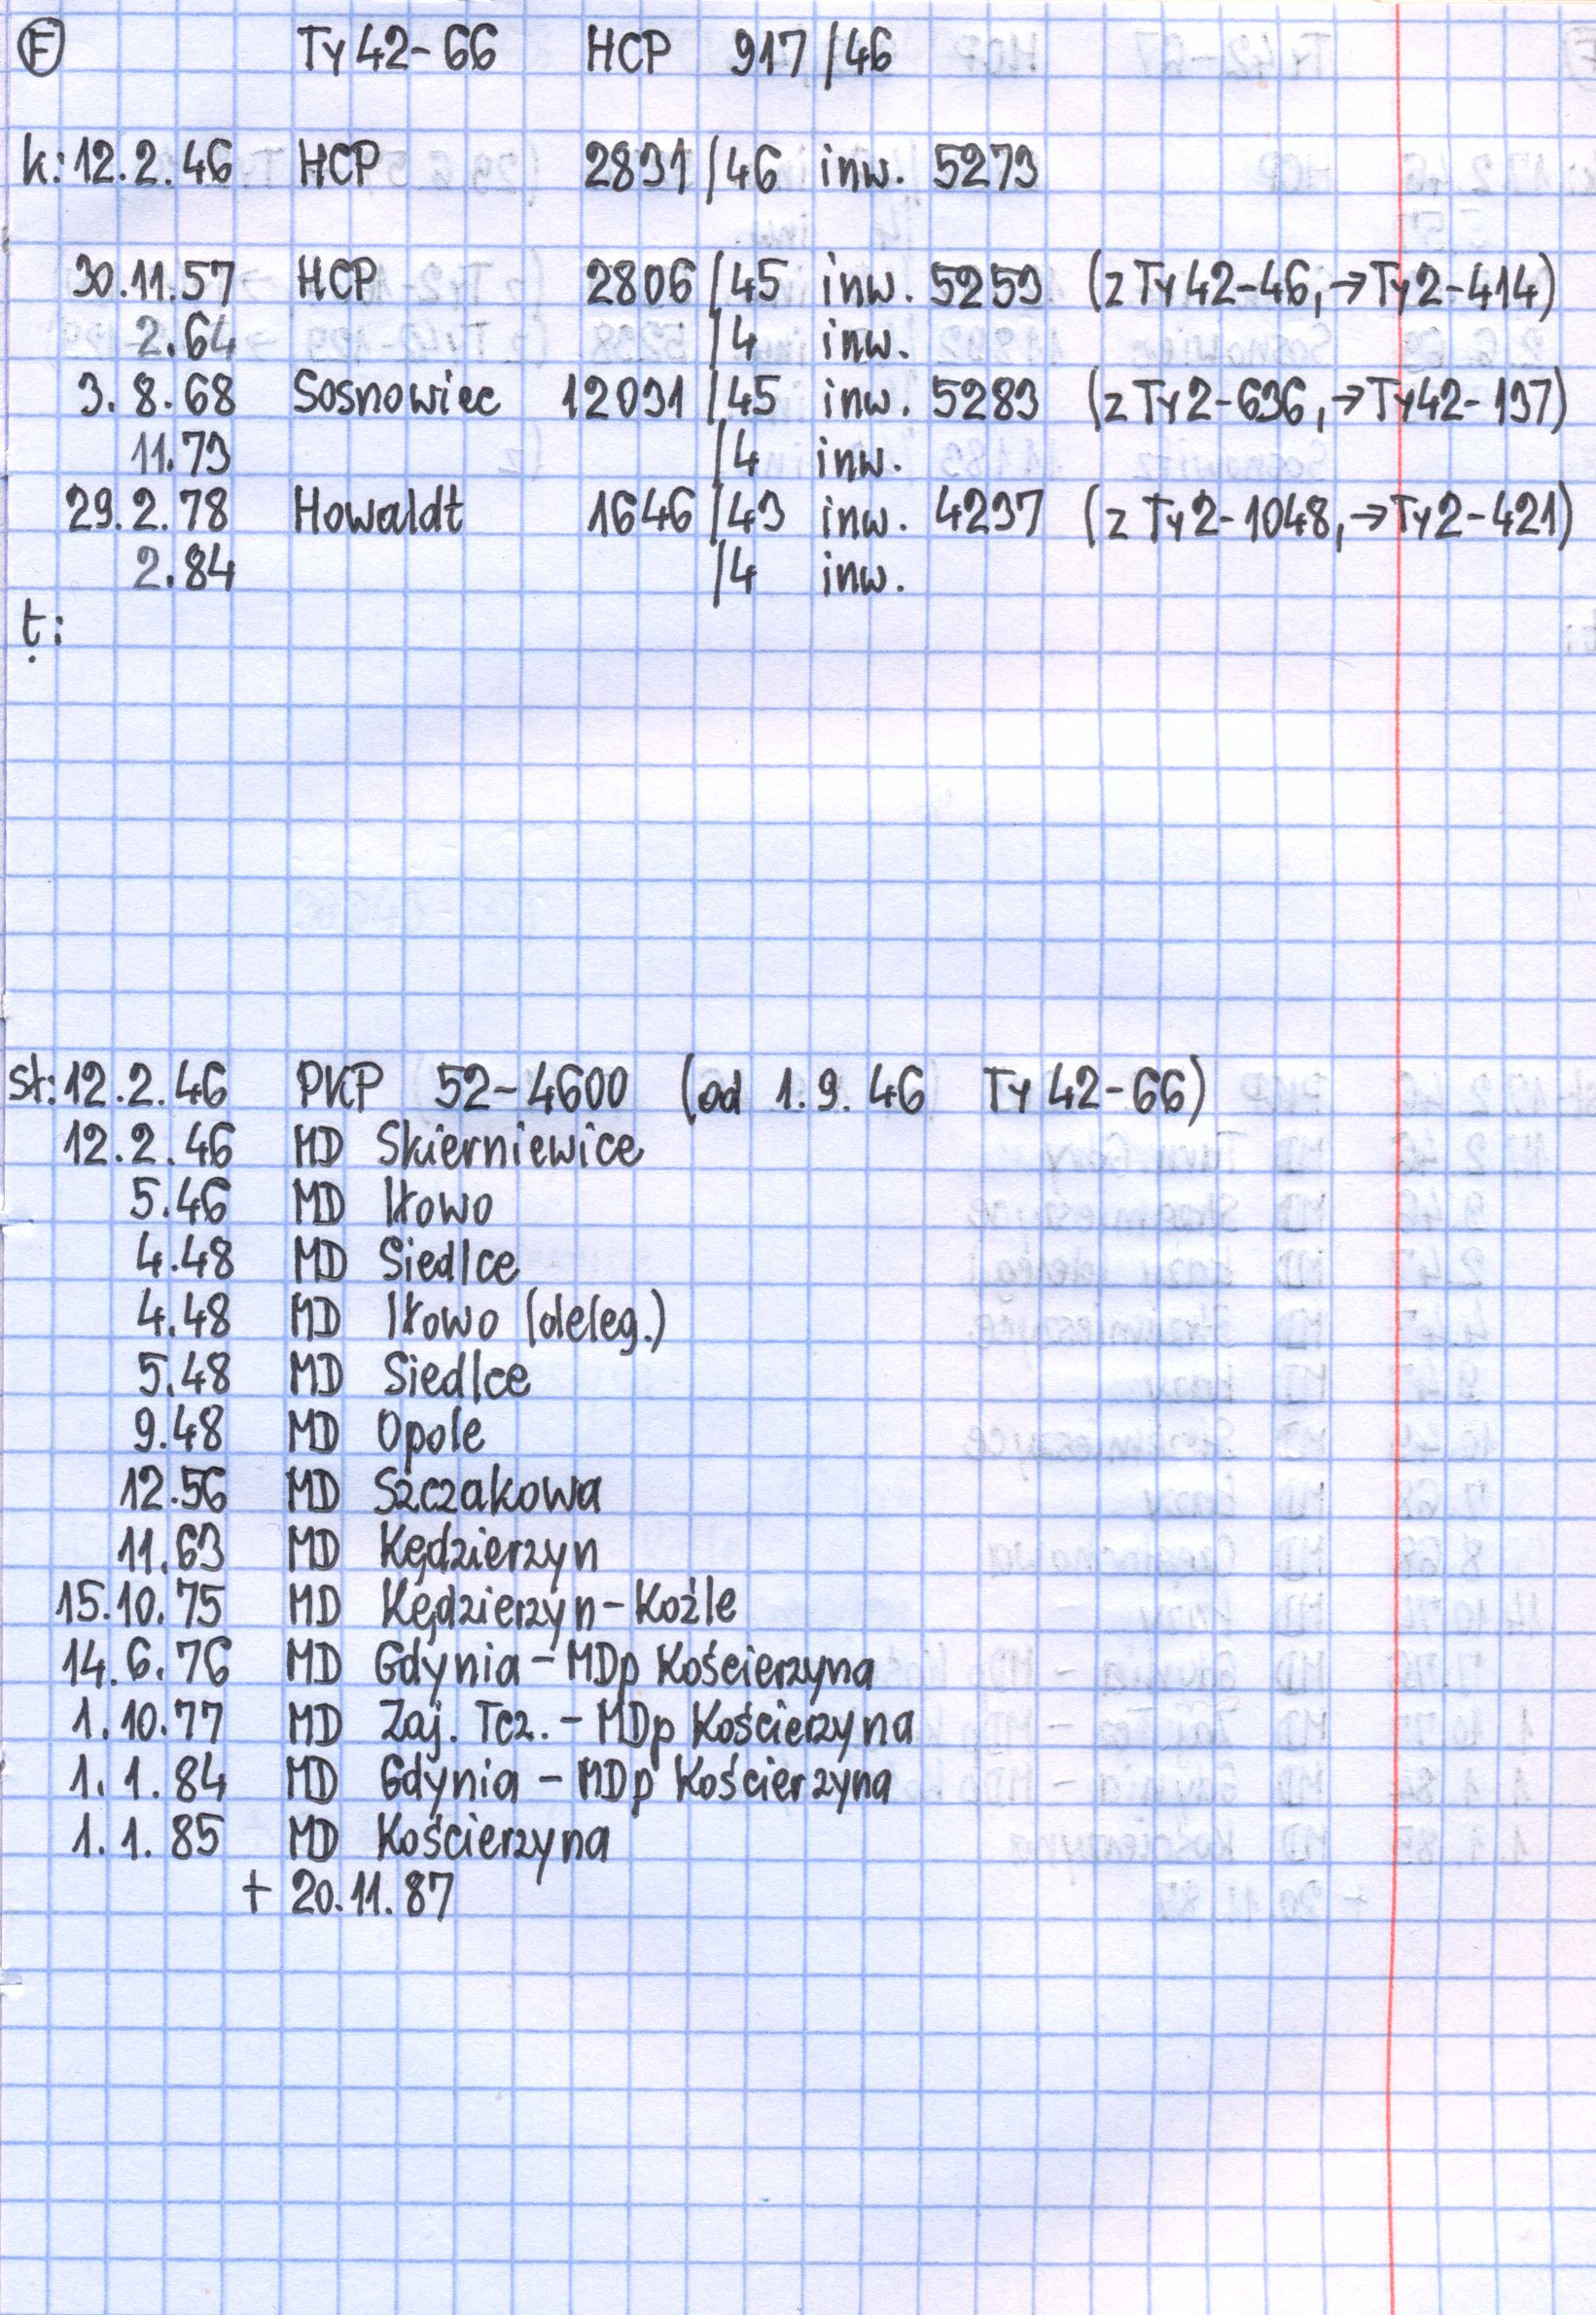 F Ty42-66 HCP 917/46
k: 12.2.46 HCP 2831/46 inw. 5273
30.11.57 HCP 2806/45 inw. 5253 (z Ty42-46, →Ty2-414)
2.64 /4 inw.
3.8.68 Sosnowiec 12031/45 inw. 5283 (z Ty2-636, →Ty42-137)
11.73 /4 inw.
29.2.78 Howaldt 1646/43 inw. 4237 (z Ty2-1048, →Ty2-421)
2.84 /4 inw.
t:
st: 12.2.46 PKP 52-4600 (od 1.9.46 Ty42-66)
12.2.46 MD Skierniewice
5.46 MD Iłowo
4.48 MD Siedlce
4.48 MD Iłowo (deleg.)
5.48 MD Siedlce
9.48 MD Opole
12.56 MD Szczakowa
11.63 MD Kędzierzyn
15.10.75 MD Kędzierzyn-Koźle
14.6.76 MD Gdynia - MDp Kościerzyna
1.10.77 MD Zaj. Tcz. - MDp Kościerzyna
1.1.84 MD Gdynia - MDp Kościerzyna
1.1.85 MD Kościerzyna
+ 20.11.87